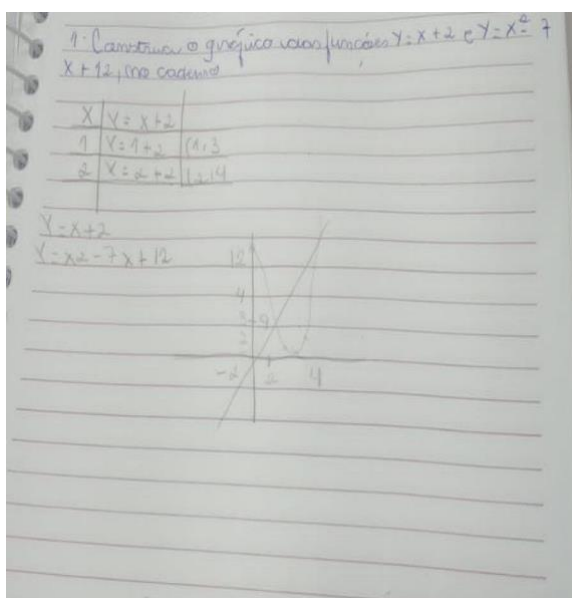 1. Construa o gráfico das funções Y = x + 2 e Y = x² - 7
x + 12, no caderno
X Y = x + 2
1 Y = 1 + 2 (1,3
2 Y = 2 + 2 (2,4
Y = x + 2
Y = x2 - 7x + 12
12
4
3
2
-2 2 4